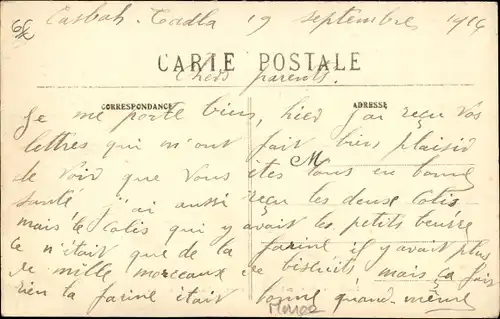 Casbah-Tadla 19 septembre 1914
CARTE POSTALE
Chers parents.
CORRESPONDANCE ADRESSE
Je me porte bien, hier j'ai reçu vos
lettres qui m'ont fait bien plaisir
M
de voir que vous êtes tous en bonne
santé j'ai aussi reçu les deux colis
mais le colis qui y avait les petits beurre
ce n'était que de la farine il y avait plus
de mille morceaux de biscuits, mais ça fait
rien la farine était bonne quand même
Maroc